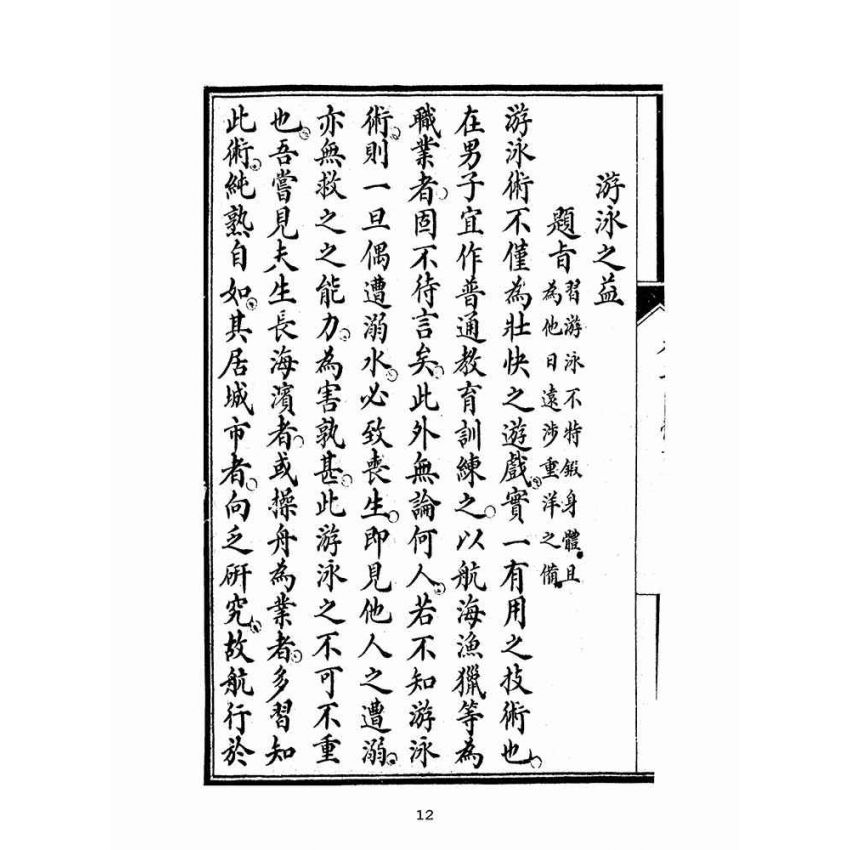 游泳之益
題旨
習游泳不特鍛身體且
為他日遠涉重洋之備
游泳術不僅為壯快之遊戲實一有用之技術也
在男子宜作普通教育訓練之以航海漁獵等為
職業者固不待言矣此外無論何人若不知游泳
術則一旦偶遭溺水必致喪生即見他人之遭溺
亦無救之之能力為害孰甚此游泳之不可不重
也吾嘗見夫生長海濱者或操舟為業者多習知
此術純熟自如其居城市者向乏研究故航行於
12